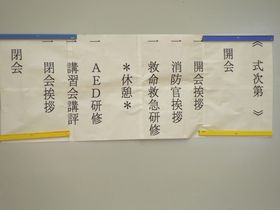 《 式次第 》
開会
一 開会挨拶
一 消防官挨拶
一 救命救急研修
＊休憩＊
一 AED研修
一 講習会講評
一 閉会挨拶
閉会